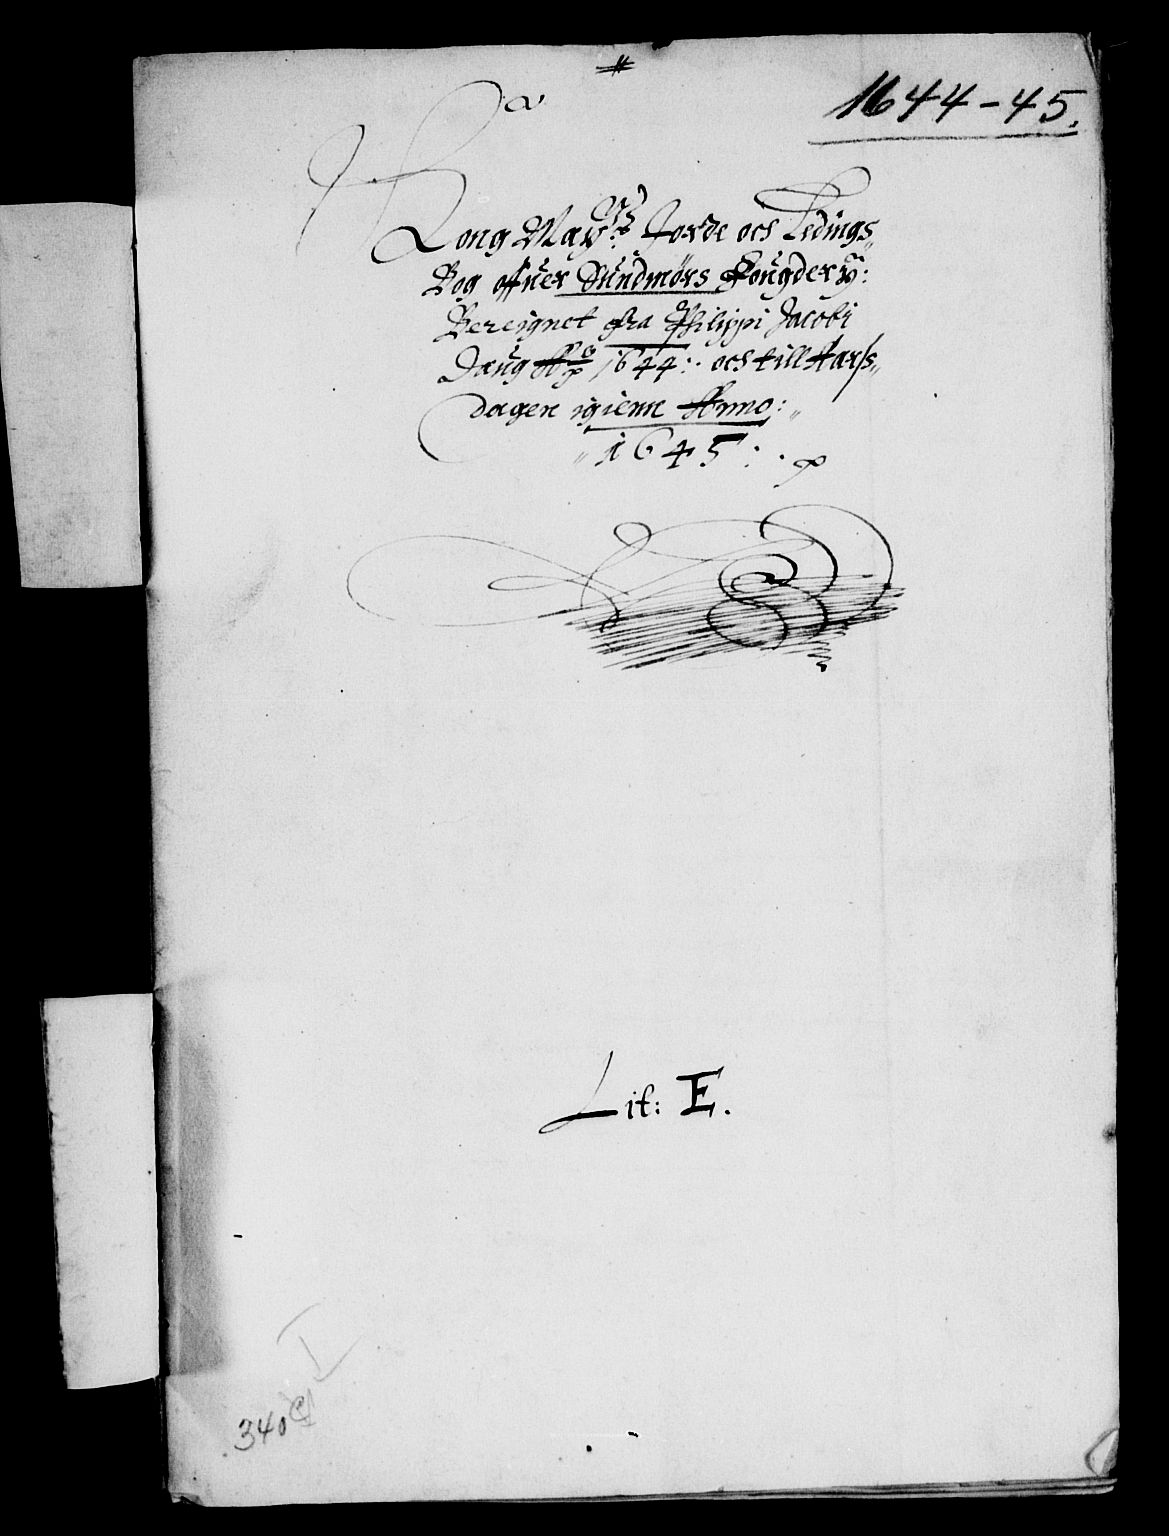 1644-45.
Kong May:ts Jorde och Ledings
Bog offuer Sundmørs Fougderÿ:
Bereignet fra Philippi Jacobi
Daug Ao 1644: och till Aarss
dagen igienn Anno:
1645:
Lit: E.
I
340